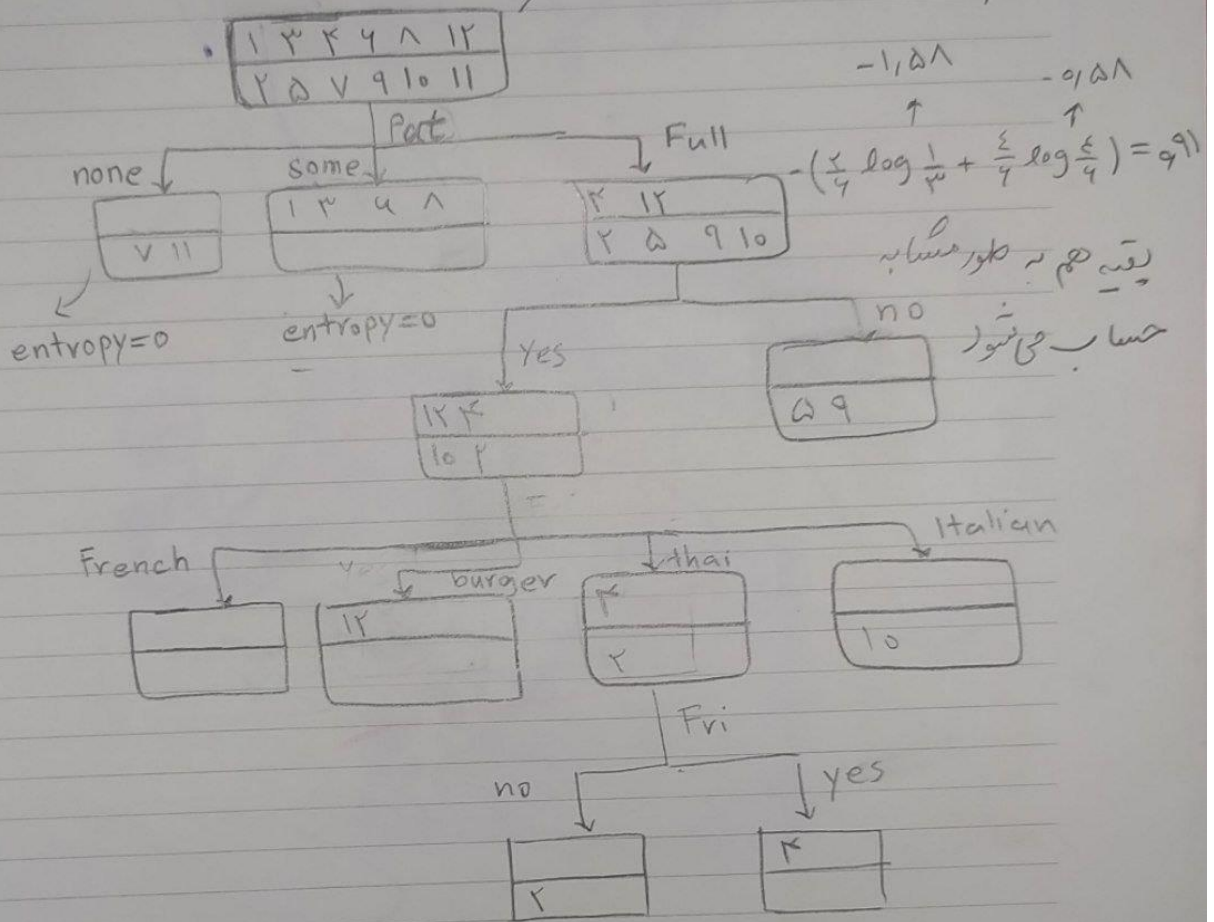 ۱ ۳ ۴ ۶ ۸ ۱۲
۲ ۵ ۷ ۹ ۱۰ ۱۱
Pat
none
some
Full
۷ ۱۱
۱ ۳ ۶ ۸
۴ ۱۲
۲ ۵ ۹ ۱۰
-۱,۵۸
-۰,۵۸
-(۲/۶ log ۱/۳ + ۴/۶ log ۴/۶) = ۰٫۹۱
بقیه هم به طور مشابه
حساب می‌شود
entropy=0
entropy=0
Yes
no
۱۲ ۴
۱۰ ۲
۵ ۹
French
burger
thai
Italian
۱۲
۴
۲
۱۰
Fri
no
yes
۲
۴